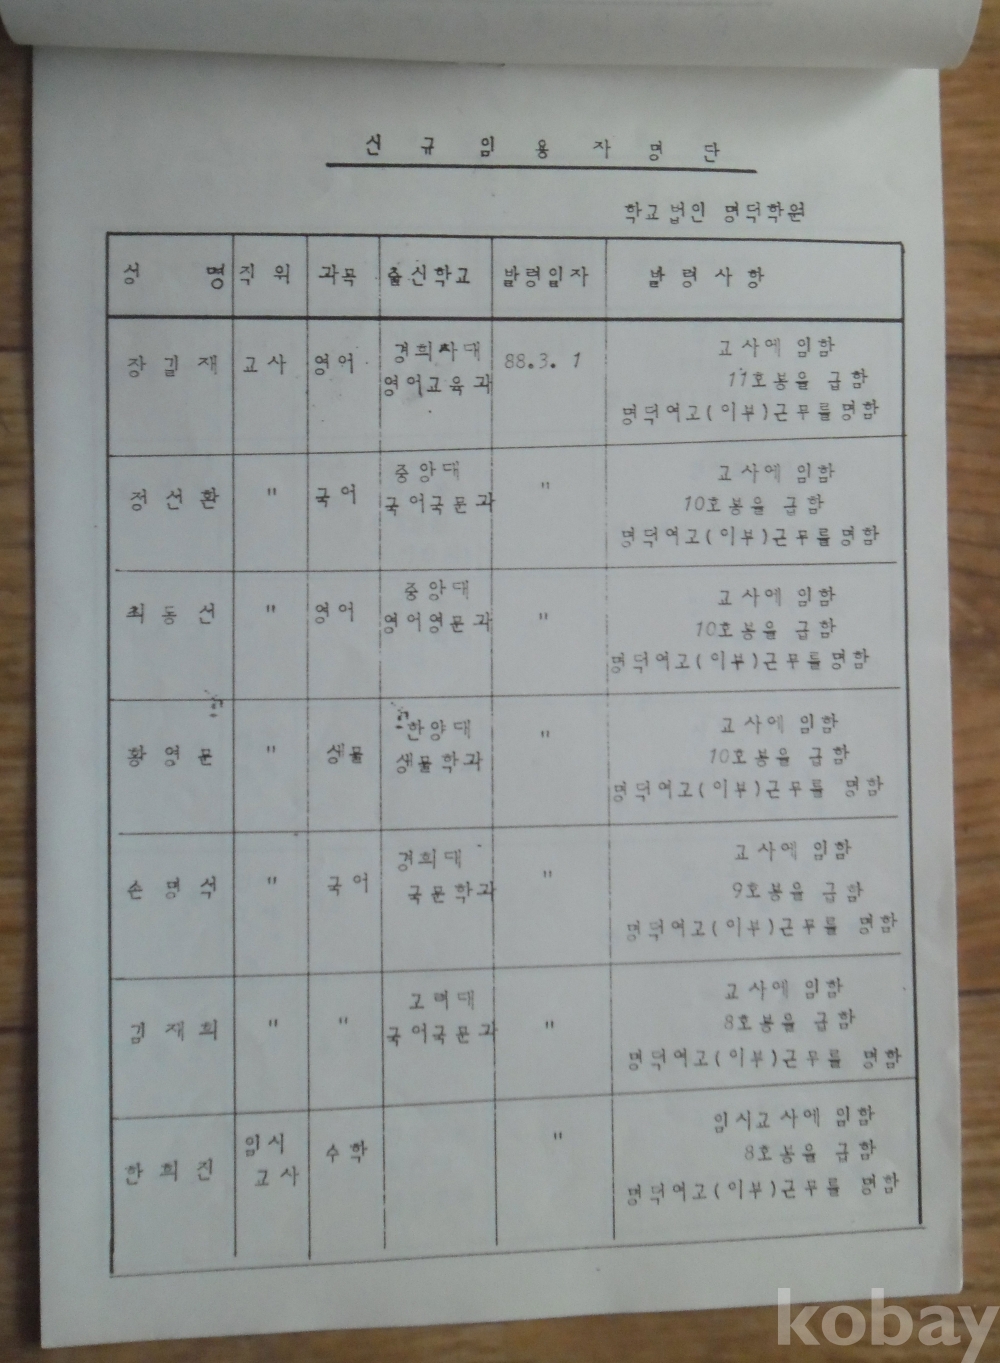 신규임용자명단
학교법인 명덕학원
성 명 직 위 과목 출신학교 발령일자 발 령 사 항
장 길 재 교 사 영어 경희사대 영어교육과 88.3. 1 교사에 임함
11호봉을 급함
명덕여고(이부)근무를명함
정 선 환 " 국어 중앙대 국어국문과 " 교사에 임함
10호봉을 급함
명덕여고(이부)근무를명함
최 동 선 " 영어 중앙대 영어영문과 " 교사에 임함
10호봉을 급함
명덕여고(이부)근무를명함
황 영 문 " 생물 한양대 생물학과 " 교사에 임함
10호봉을 급함
명덕여고(이부)근무를 명함
손 명 석 " 국어 경희대 국문학과 " 교사에 임함
9호봉을 급함
명덕여고(이부)근무를 명함
김 재 희 " " 고려대 국어국문과 " 교사에 임함
8호봉을 급함
명덕여고(이부)근무를 명함
한 희 진 임시 교사 수학 " 임시교사에 임함
8호봉을 급함
명덕여고(이부)근무를 명함
kobay